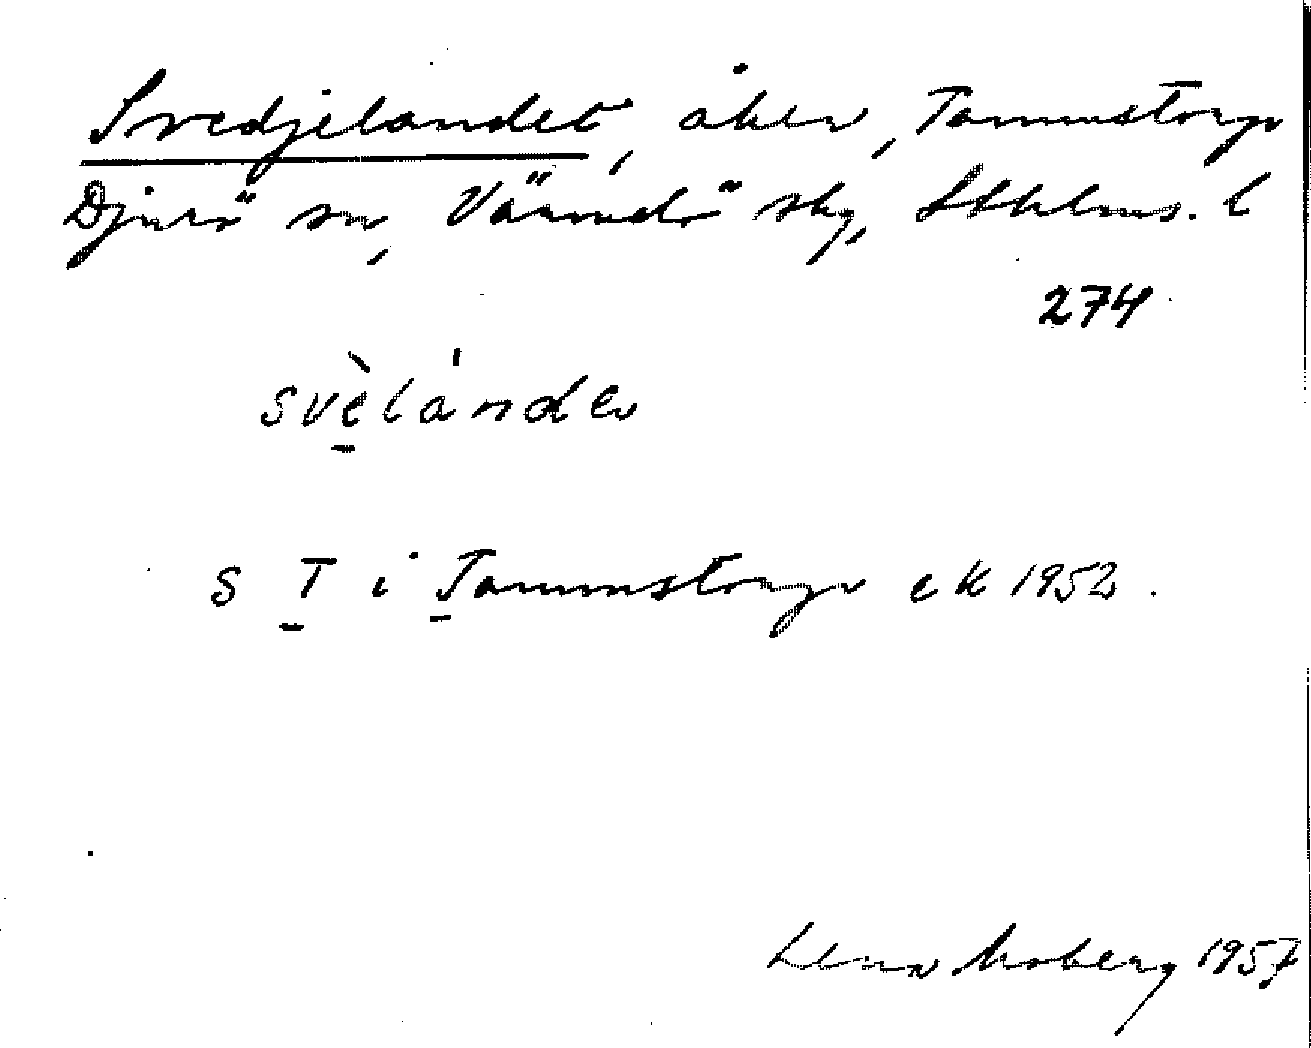 Svedjelandet, åker, Tammstorp
Djurö sn, Värmdö sky, Sthlms. l
274
svèlánde
S T i Tammstorp ek 1952.
Lena Moberg 1957